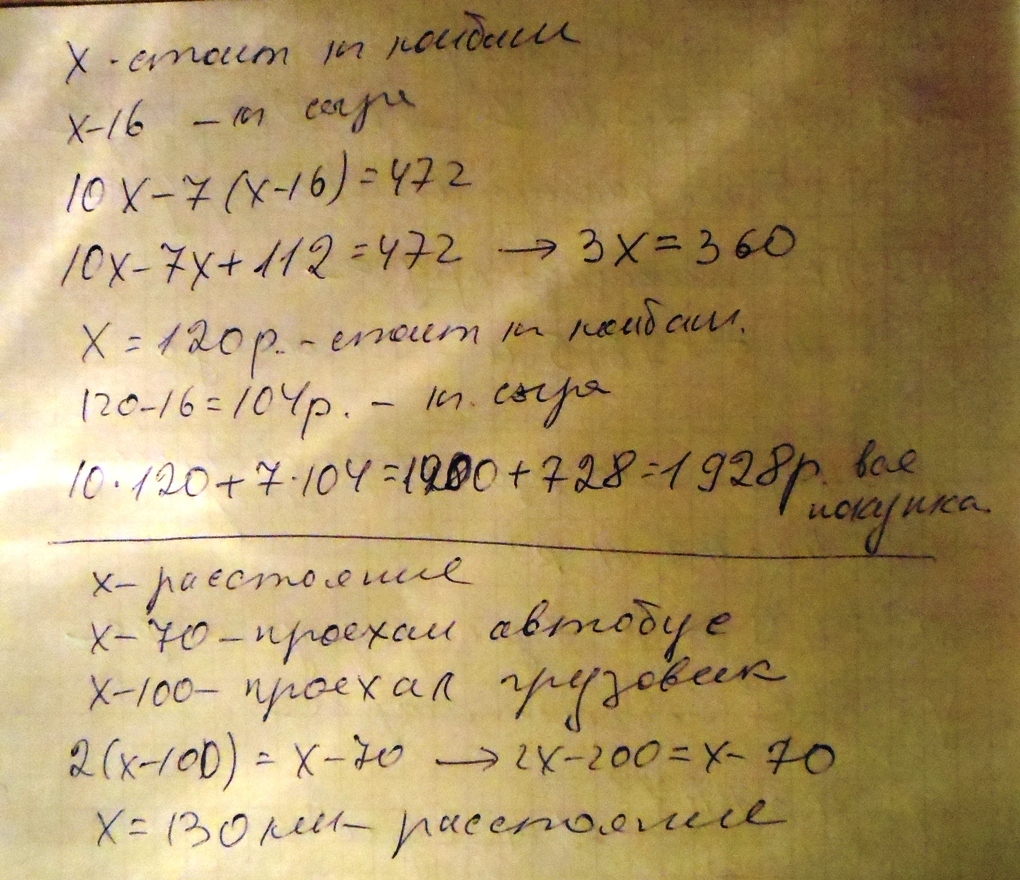 x - стоит кг колбасы
x-16 - кг сыра
10x-7(x-16)=472
10x-7x+112=472 → 3x=360
x=120р. - стоит кг колбасы.
120-16=104р. - кг. сыра
10·120+7·104=1200+728=1928р. вся
покупка.
x- расстояние
x-70-проехал автобус
x-100- проехал грузовик
2(x-100)=x-70 → 2x-200=x-70
x=130км- расстояние